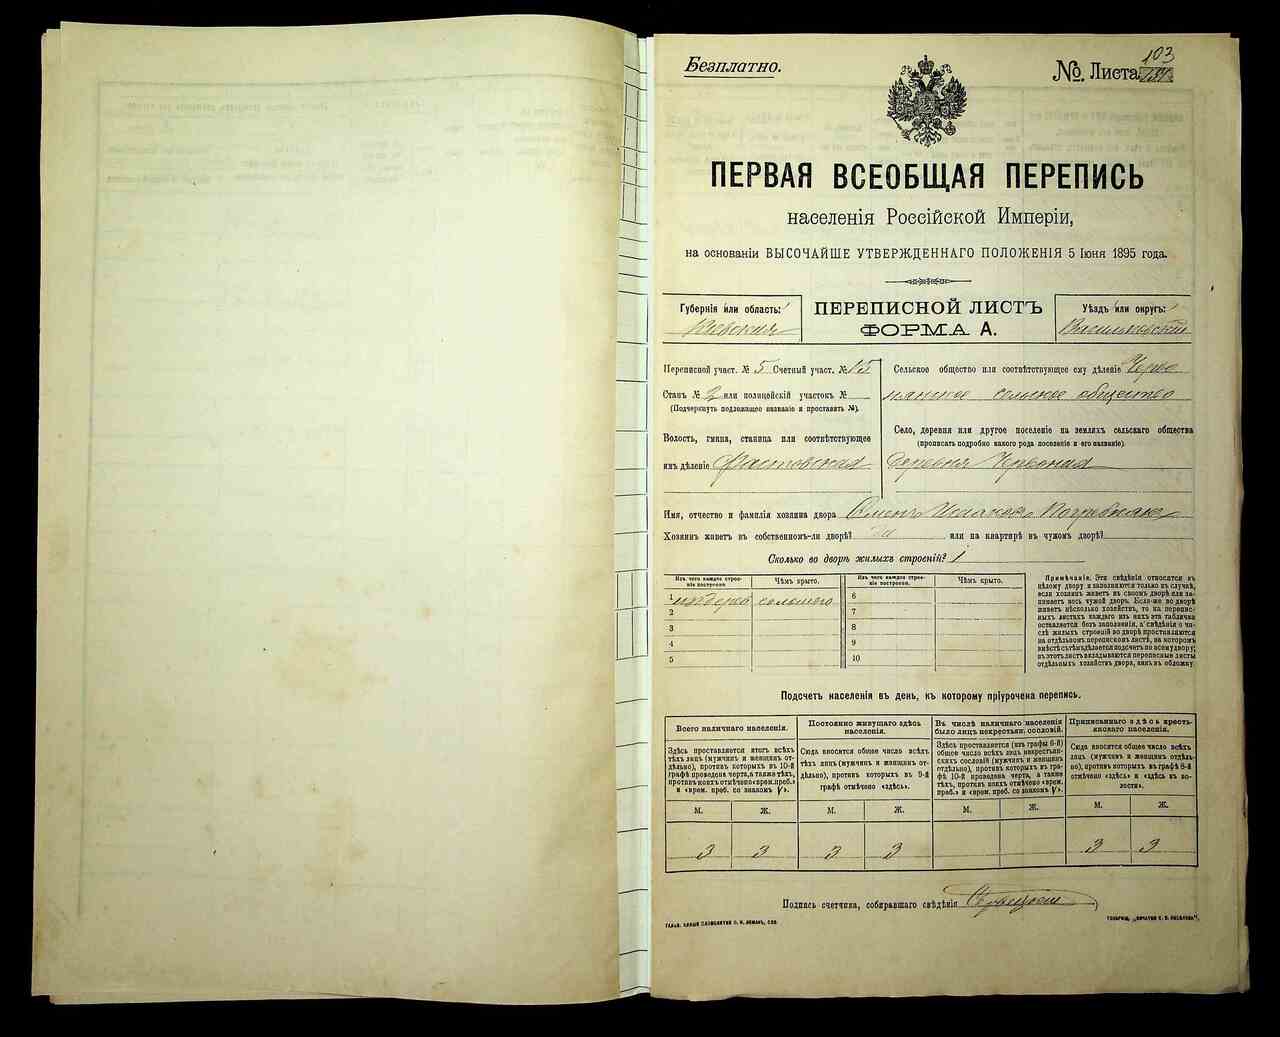 Безплатно.
№ Листа 103
ПЕРВАЯ ВСЕОБЩАЯ ПЕРЕПИСЬ
населенія Россійской Имперіи,
на основаніи ВЫСОЧАЙШЕ УТВЕРЖДЕННАГО ПОЛОЖЕНІЯ 5 Іюня 1895 года.
Губернія или область:
Кіевская
ПЕРЕПИСНОЙ ЛИСТЪ
ФОРМА А.
Уѣздъ или округъ:
Васильковскій
Переписной участ. № 5 Счетный участ. № 15
Станъ № 2 или полицейскій участокъ №
(Подчеркнуть подлежащее названіе и проставить №).
Волость, гмина, станица или соотвѣтствующее
имъ дѣленіе Фастовская
Сельское общество или соотвѣтствующее ему дѣленіе Черво
нянское сельское общество
Село, деревня или другое поселеніе на земляхъ сельскаго общества
(прописать подробно какого рода поселеніе и его названіе).
деревня Червоная
Имя, отчество и фамилія хозяина двора Семенъ Исааковъ Погребнякъ
Хозяинъ живетъ въ собственномъ-ли дворѣ? или на квартирѣ въ чужомъ дворѣ?
Сколько во дворѣ жилыхъ строеній? 1
Изъ чего каждое строеніе построено.
Чѣмъ крыто.
Изъ чего каждое строеніе построено.
Чѣмъ крыто.
1 изъ дерева соломою
2
3
4
5
6
7
8
9
10
Примѣчаніе. Эти свѣдѣнія относятся къ
цѣлому двору и заполняются только въ случаѣ,
если хозяинъ живетъ въ своемъ дворѣ или занимаетъ
весь чужой дворъ. Если-же во дворѣ
живетъ нѣсколько хозяйствъ, то на переписныхъ
листахъ каждаго изъ нихъ эта табличка
оставляется безъ заполненія, а свѣдѣнія о числѣ
жилыхъ строеній во дворѣ проставляются
на отдѣльномъ переписномъ листѣ, на которомъ
вмѣстѣ съ тѣмъ дѣлается подсчетъ по всему двору;
въ этотъ листъ вкладываются переписные листы
отдѣльныхъ хозяйствъ двора, какъ въ обложку.
Подсчетъ населенія въ день, къ которому пріурочена перепись.
Всего наличнаго населенія.
Здѣсь проставляется итогъ всѣхъ
тѣхъ лицъ (мужчинъ и женщинъ отдѣльно),
противъ которыхъ въ 10-й
графѣ проведена черта, а также тѣхъ,
противъ коихъ отмѣчено «врем. преб.»
и «врем. преб. со знакомъ V».
Постоянно живущаго здѣсь
населенія.
Сюда вносится общее число всѣхъ
тѣхъ лицъ (мужчинъ и женщинъ отдѣльно),
противъ которыхъ въ 9-й
графѣ отмѣчено «здѣсь».
Въ числѣ наличнаго населенія
было лицъ некрестьян. сословій.
Здѣсь проставляется (изъ графы 6-й)
общее число всѣхъ лицъ некрестьянскихъ
сословій (мужчинъ и женщинъ
отдѣльно), противъ которыхъ въ графѣ
10-й проведена черта, а также
тѣхъ, противъ коихъ отмѣчено «врем.
преб.» и «врем. преб. со знакомъ V».
Приписаннаго здѣсь крестьянскаго
населенія.
Сюда вносится общее число всѣхъ
лицъ (мужчинъ и женщинъ отдѣльно),
противъ которыхъ въ графѣ 8-й
отмѣчено «здѣсь» и «здѣсь въ волости».
М. Ж. М. Ж. М. Ж. М. Ж.
3 3 3 3 3 3
Подпись счетчика, собиравшаго свѣдѣнія